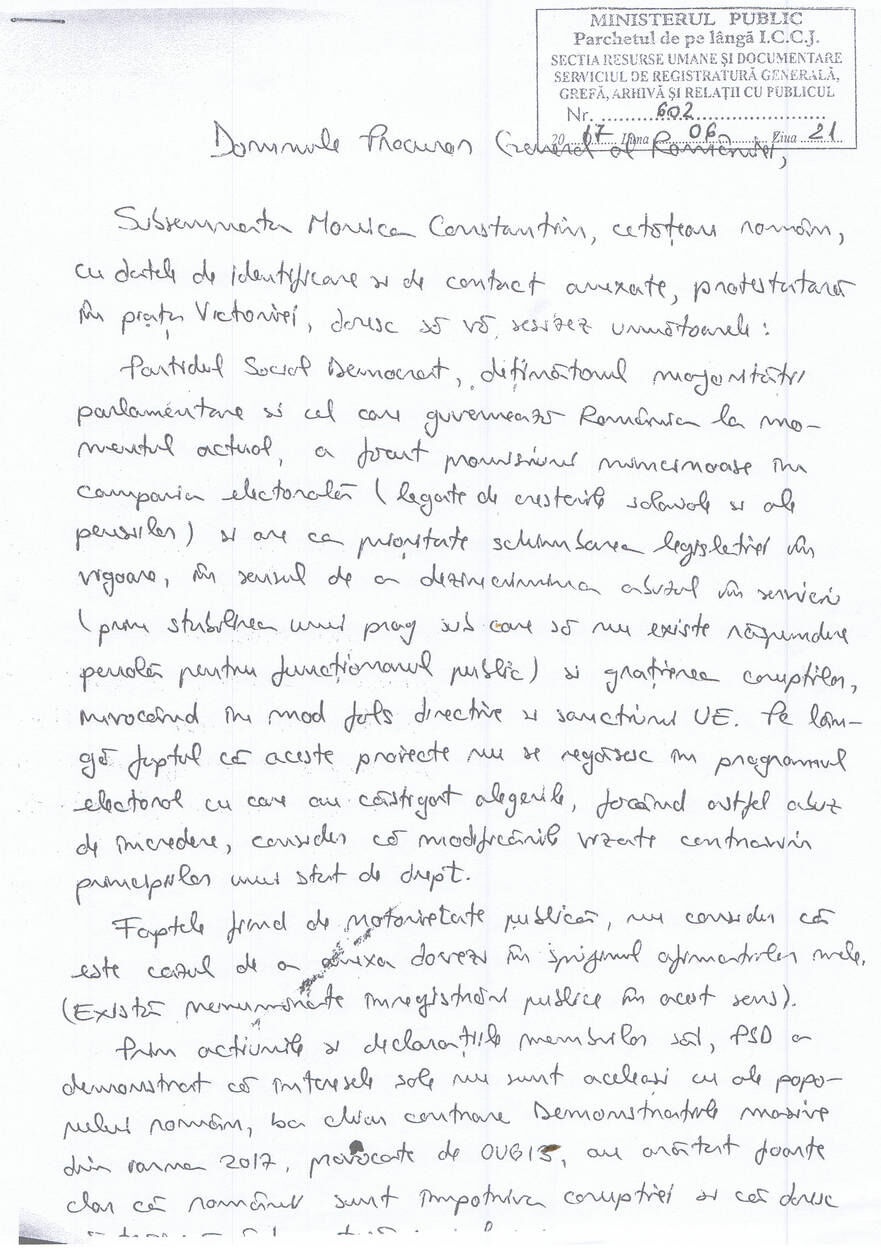 MINISTERUL PUBLIC
Parchetul de pe lângă I.C.C.J.
SECTIA RESURSE UMANE ŞI DOCUMENTARE
SERVICIUL DE REGISTRATURĂ GENERALĂ,
GREFĂ, ARHIVĂ ŞI RELAŢII CU PUBLICUL
Nr. 602
2017 luna 06 Ziua 21
Domnule Procuror General al României,
Subsemnata Monica Constantin, cetăţean român,
cu datele de identificare si de contact anexate, protestatară
în piaţa Victoriei, doresc să vă sesizez următoarele:
Partidul Social Democrat, deţinătorul majorităţii
parlamentare si cel care guvernează România la mo-
mentul actual, a făcut promisiuni mincinoase în
campania electorală (legate de cresterile salariale si ale
pensiilor) si are ca prioritate schimbarea legislatiei în
vigoare, în sensul de a dezincrimina abuzul în serviciu
(prin stabilirea unui prag sub care să nu existe răspundere
penală pentru funcţionarul public) si graţierea corupţilor,
invocând în mod fals directive si sanctiuni UE. Pe lân-
gă faptul că aceste proiecte nu se regăsesc în programul
electoral cu care au câstigat alegerile, făcând astfel abuz
de încredere, consider că modificările vizate contravin
principiilor unui stat de drept.
Faptele fiind de notorietate publică, nu consider că
este cazul de a anexa dovezi în sprijinul afirmatiilor mele.
(Există nenumărate înregistrări publice în acest sens).
Prin acţiunile si declaraţiile membrilor săi, PSD a
demonstrat că interesele sale nu sunt aceleaşi cu ale popo-
rului român, ba chiar contrare. Demonstratiile masive
din iarna 2017, provocate de OUG13, au arătat foarte
clar că românii sunt împotriva coruptiei si că doresc